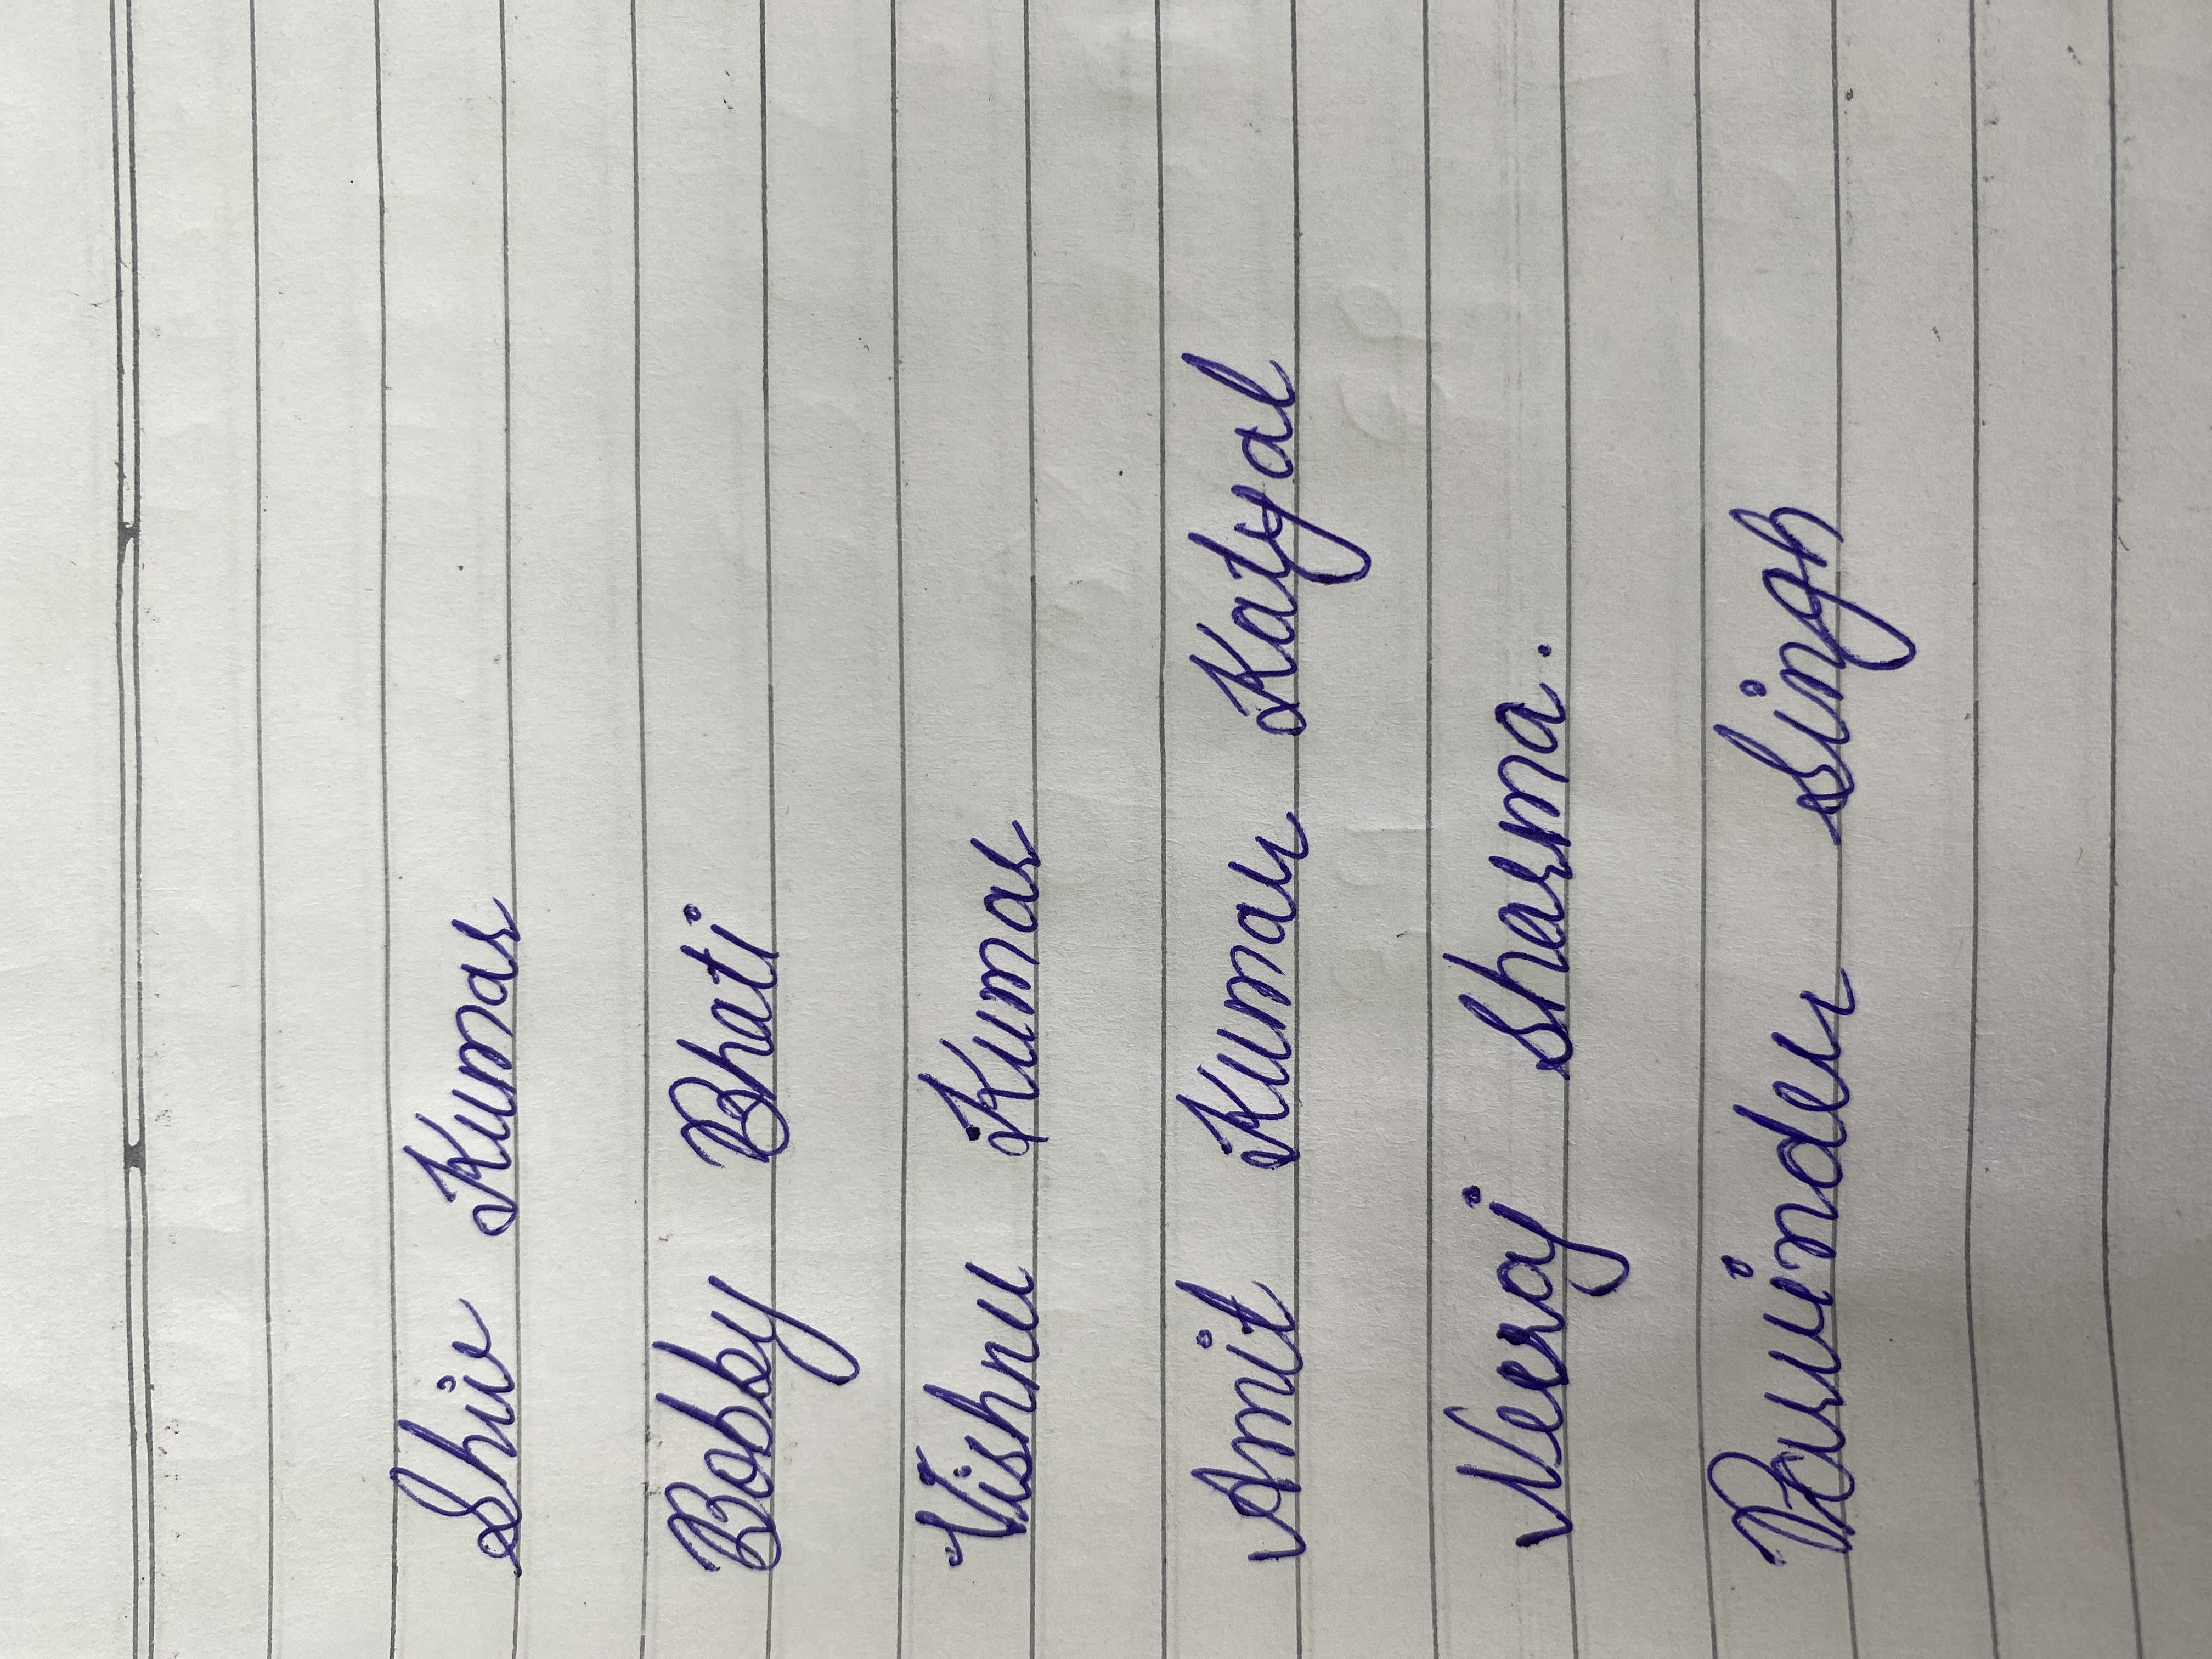 Shiv Kumar
Bobby Bhati
Vishnu Kumar
Amit Kumar Katyal
Neeraj Sharma.
Parvinder Singh